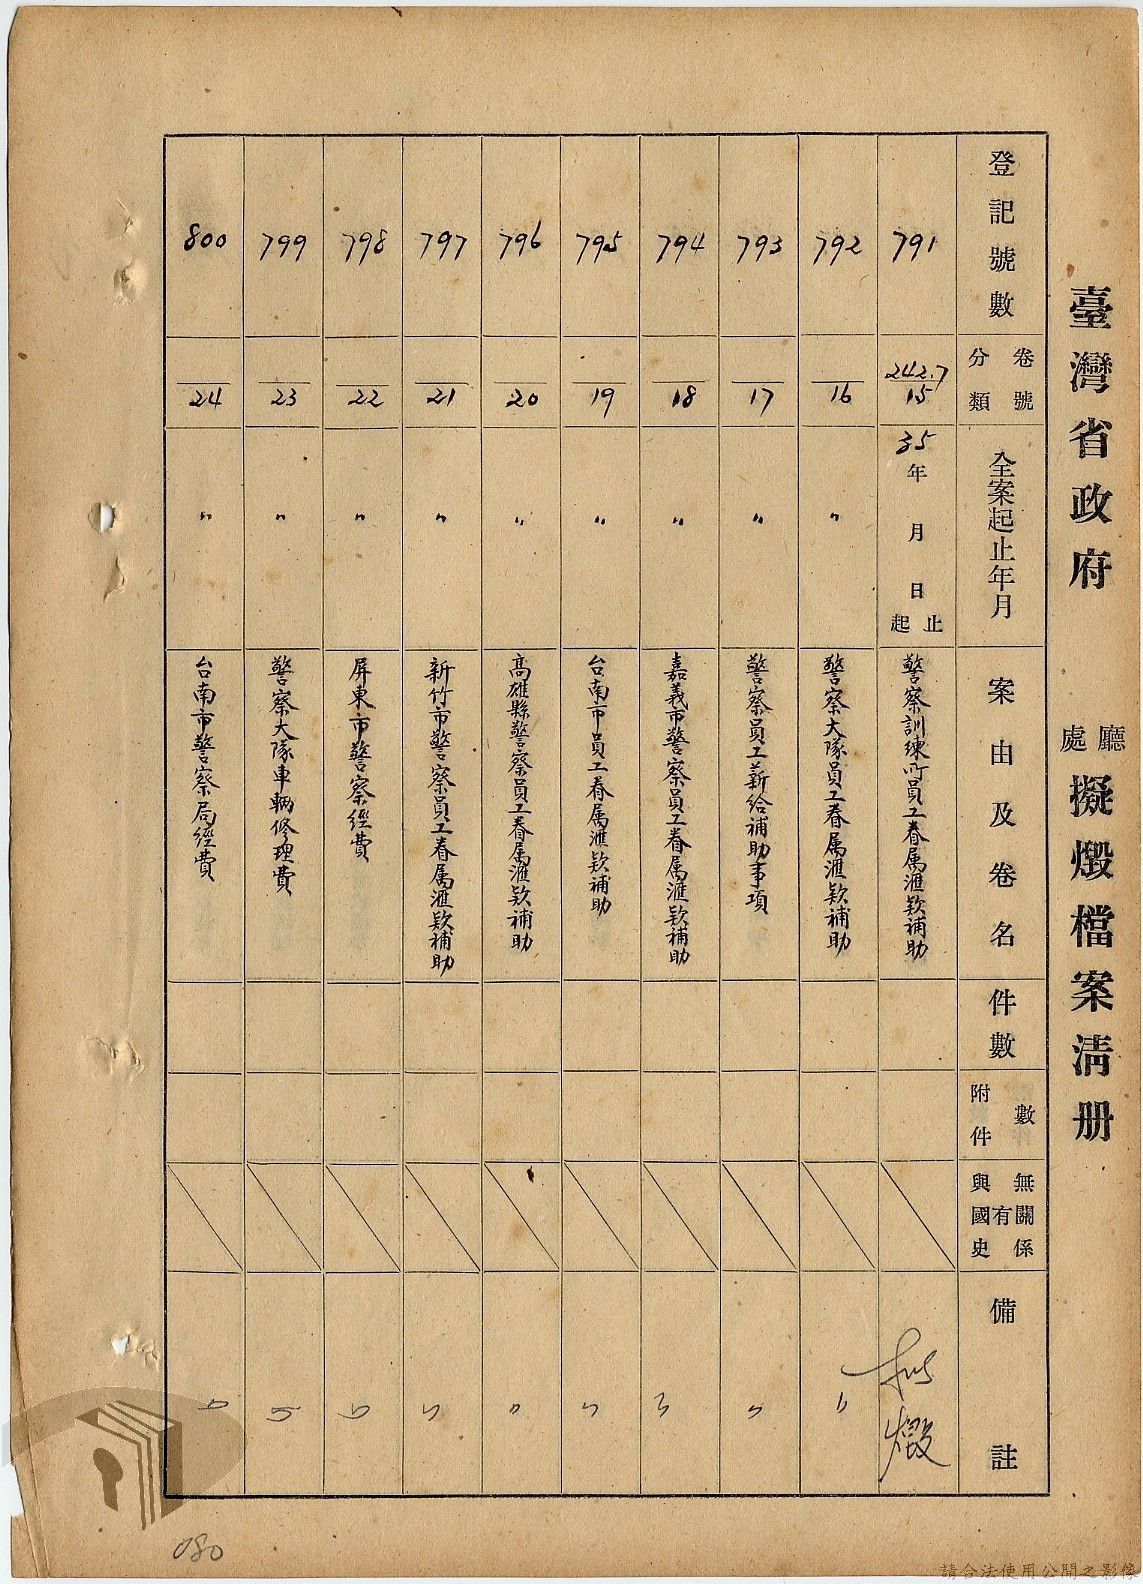 臺灣省政府 廳處 擬燬檔案清册
登記號數
卷號分類
全案起止年月
案由及卷名
件數
附件數
與國史有無關係
備註
791
242.7
15
35年 月 日起止
警察訓練所員工眷属滙欵補助
燬
792
16
〃
警察大隊員工眷属滙欵補助
〃
793
17
〃
警察員工薪給補助事項
〃
794
18
〃
嘉義市警察員工眷属滙欵補助
〃
795
19
〃
台南市員工眷属滙欵補助
〃
796
20
〃
高雄縣警察員工眷属滙欵補助
〃
797
21
〃
新竹市警察員工眷属滙欵補助
〃
798
22
〃
屏東市警察經費
〃
799
23
〃
警察大隊車輛修理費
〃
800
24
〃
台南市警察局經費
〃
080
請合法使用公開之影像